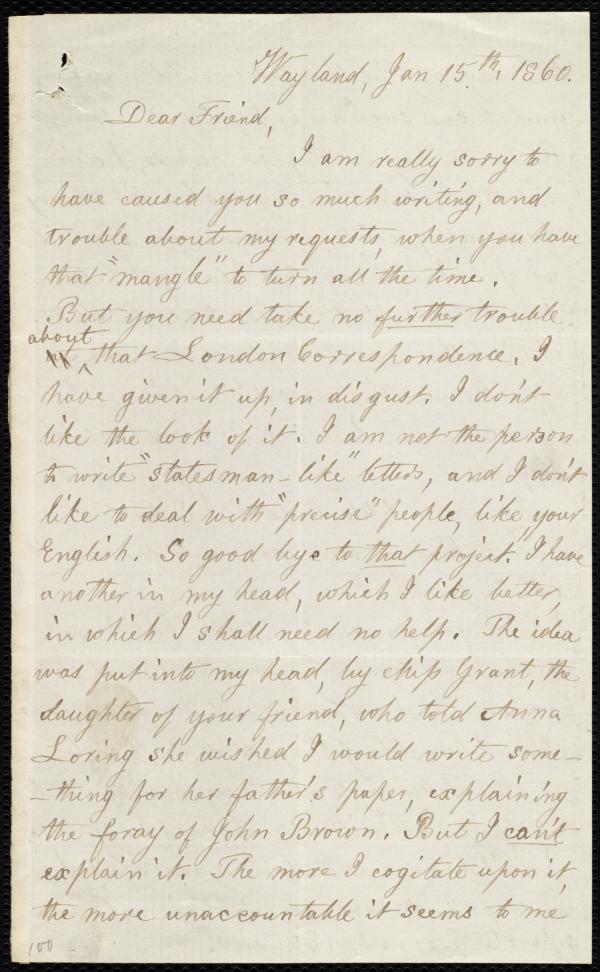 Wayland, Jan 15.th, 1860.
Dear Friend,
I am really sorry to
have caused you so much writing, and
trouble about my requests, when you have
that "mangle" to turn all the time.
But you need take no further trouble
about
that London Correspondence. I
have given it up, in disgust. I don't
like the look of it. I am not the person
to write "statesman-like" letters, and I don't
like to deal with "precise" people, like your
English. So good bye to that project. I have
another in my head, which I like better,
in which I shall need no help. The idea
was put into my head, by Miss Grant, the
daughter of your friend, who told Anna
Loring she wished I would write some-
-thing for her father's paper, explaining
the foray of John Brown. But I can't
explain it. The more I cogitate upon it,
the more unaccountable it seems to me
100